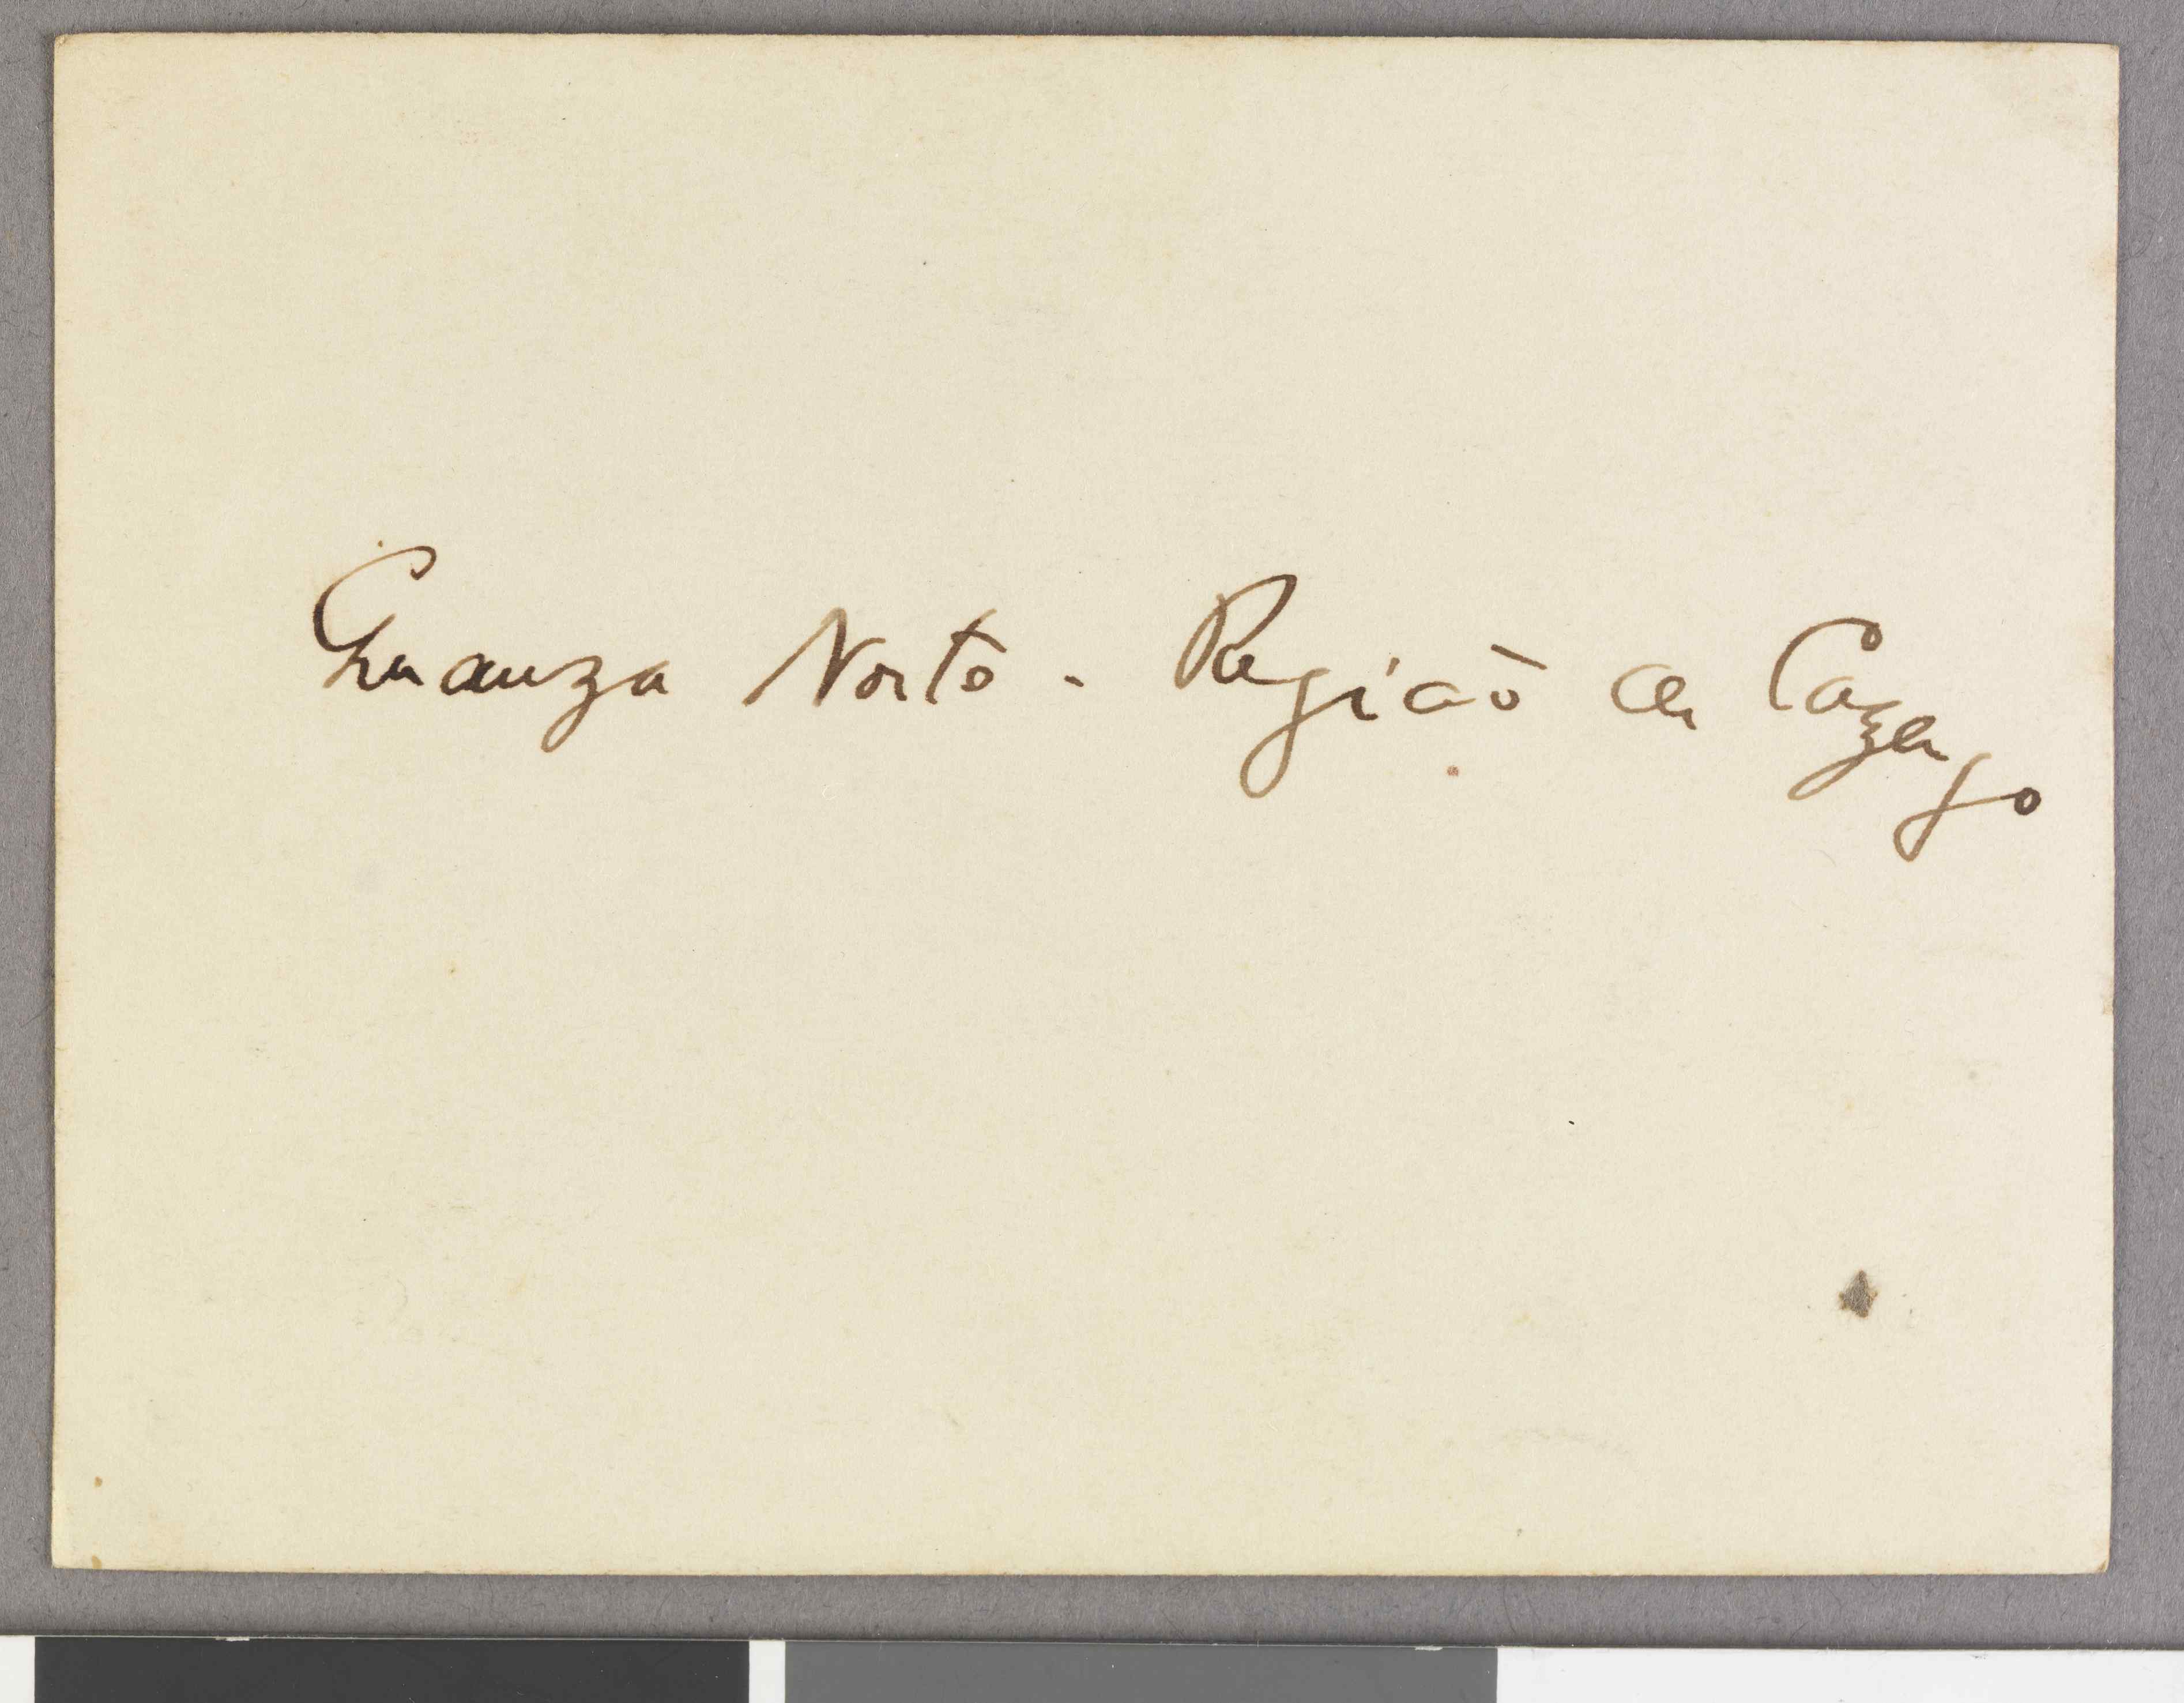 Cuanza Norte - Região de Cazengo